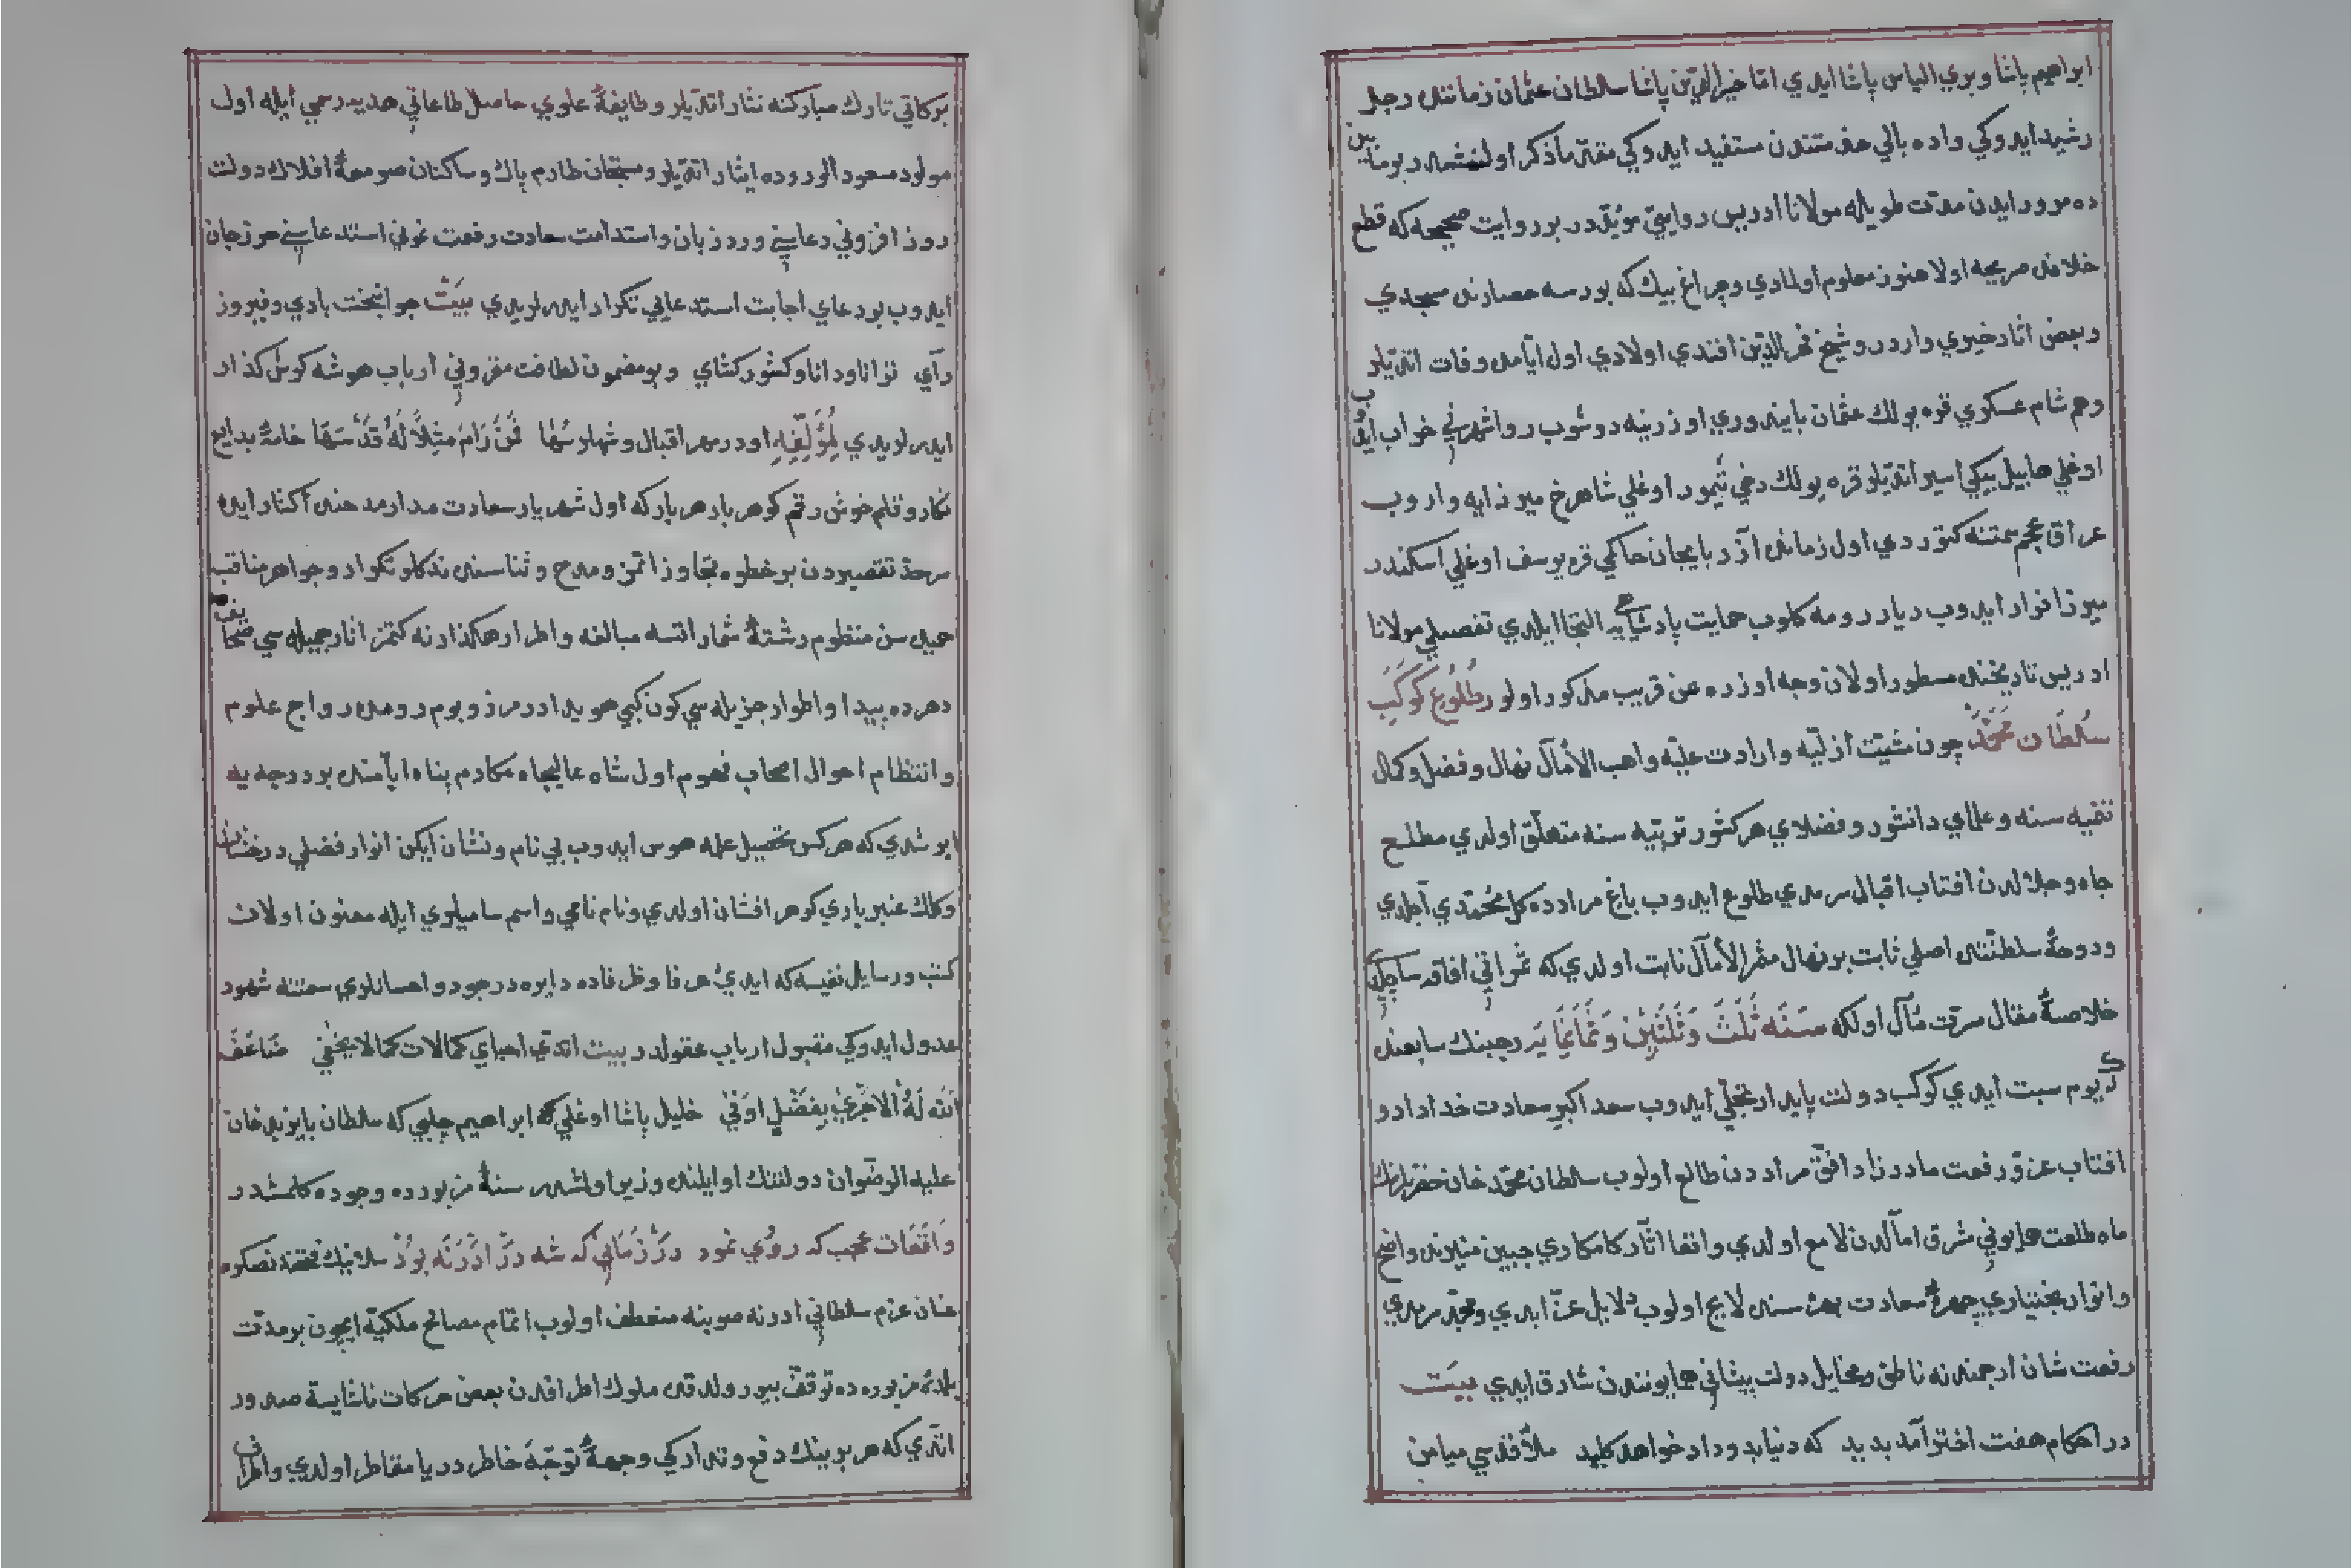 ابراهيم پاشا وبري الياس پاشا ايدي اما خير الدين پاشا سلطان عثمان زماننده رجل
رشيد ايدوكي وادده بالي حضرتندن مستفيد ايدوكي مقدما ذكر اولنمشدر بو مابين
ده مرور ايدن مدت طويله مولانا ادريس روايتن مؤيددر بر روايت صحيحه كه قطع
خلافنه صريحه اولا هنوز معلوم اولمادي وچراغ بيك كه بورسه حصارنده مسجدي
وبعض اثار خيري واردر وشيخ فخر الدين افندي اولادي اول ايامده وفات اتديلر
وهم شام عسكري قره يولك عثمان بايندوري اوزرينه دوشوب رواشهرني خراب ايدوب
اوغلي هابيل بيكي اسير اتديلر قره يولك دخي تيمور اوغلي شاهرخ ميرزايه واروب
عراق عجم سمتنه كتوردي اول زمانده آذربايجان حاكمي قره يوسف اوغلي اسكندر
ميرزا فرار ايدوب ديار رومه كلوب حمايت پادشاهيه التجا ايلدي تفصيلي مولانا
ادريس تاريخنده مسطور اولان وجه اوزره عن قريب مذكور اولور طلوع كوكب
سلطان محمد چون مشيت ازليه وارادت عليه واهب الآمال نهال وفضل وكمال
تنقيه سنه وعلماي دانشور وفضلاي هر كشور تربيه سنه متعلق اولدي مطلع
جاه وجلالدن افتاب اقبال سرمدي طلوع ايدوب باغ مرادده كل محمدي آچلدي
ودوحه سلطنتده اصلي ثابت بر نهال مثمر الآمال نابت اولدي كه ثمراتي افاقه
خلاصه مقال مسرت مآل اولكه سنه ثلث وثلثين وثمانمايه رجبنك سابعنده
كه يوم سبت ايدي كوكب دولت پايدار تجلي ايدوب سعد اكبر سعادت خداداد و
افتاب عز و رفعت مادرزاد افق مراددن طالع اولوب سلطان محمد خان حضرتلرنك
ماه طلعت همايوني مشرق امالدن لامع اولدي واقفا اثار كامكاري جبين منيرنده واضح
وانوار بختياري چهره سعادت بهره سنده لايح اولوب دلايل عز ابدي ومجد سرمدي
رفعت شان ارجمندنه ناطق ومخايل دولت پيشاني همايونندن شارق ايدي بيت
در احكام هفت اختر آمد بديد كه دنيا بدو داد خواهد كليد ملأ قدسي ميامن
بركاتي تارك مباركنه نثار اتديلر وطايفه علوي حاصل طاعاتي هديه رسمي ايله اول
مولود مسعود الوروده ايثار اتديلر ومسبحان طارم پاك وساكنان صومعه افلاك دولت
روز افزوني دعاسني ورد زبان واستدامت سعادت رفعت نموني استدعاسني حرز جان
ايدوب بو دعاي اجابت استدعايي تكرار ايدرلر ايدي بيت جوانبخت بادي وفيروز
رآي توانا ودانا وكشور كشاي وبو مضمون لطافت مقروني ارباب هوشه كوش كذار
ايدرلر ايدي لمؤلفه اودر مهر اقبال وشهلر سها فمن رام مثلا له قد سها خامه بدايع
نكار وقلم خوش رقم كوهر بار هر بار كه اول شهريار سعادت مدار مدحنده اكثار ايده
سرحد تقصيردن بر خطوه تجاوز اتمز ومدح وثناسنده نه دكلو تكرار وجواهر مناقب
حميده سن منظوم رشته شمار اتسه مبالغه واطرا رهكذارنه كتمز اثار جميله سي صحايف
دهرده پيدا واطوار جزيله سي كون كبي هويدادر مرز وبوم رومده رواج علوم
وانتظام احوال اصحاب فهوم اول شاه عاليجاه مكارم پناه ايامنده بر درجه يه
ايرشدي كه هر كس تحصيل علمه هوس ايدوب بي نام ونشان ايكن انوار فضلي درخشان
وكلك عنبر باري كوهر افشان اولدي ونام نامي واسم ساميلري ايله معنون اولان
كتب ورسايل نفيسه كه ايدئ عرفا وظرفاده دايره در جود واحسانلري سمتنه شهود
عدول ايدوكي مقبول ارباب عقولدر بيت اتدي احياي كمالات كما لا يخفي ضاعف
الله له الاجر بفضل اوفي خليل پاشا اوغلي ابراهيم چلبي كه سلطان بايزيد خان
عليه الرضوان دولتنك اوايلنده وزير اولمشدر سنه مزبورده وجوده كلمشدر
واقعات عجب كه روي نمود در زماني كه شه در ادرنه بود سلانيك فتحندنصكره
عنان عزم سلطاني ادرنه صوبنه منعطف اولوب اتمام مصالح ملكيه ايچون بر مدت
بلده مزبوره ده توقف بيورولدقده ملوك اطرافدن بعض حركات ناشايسته صدور
اتدي كه هر بويينك دفع وتداركي وجهه توجه خاطر دريا مقاطر اولدي واطراف